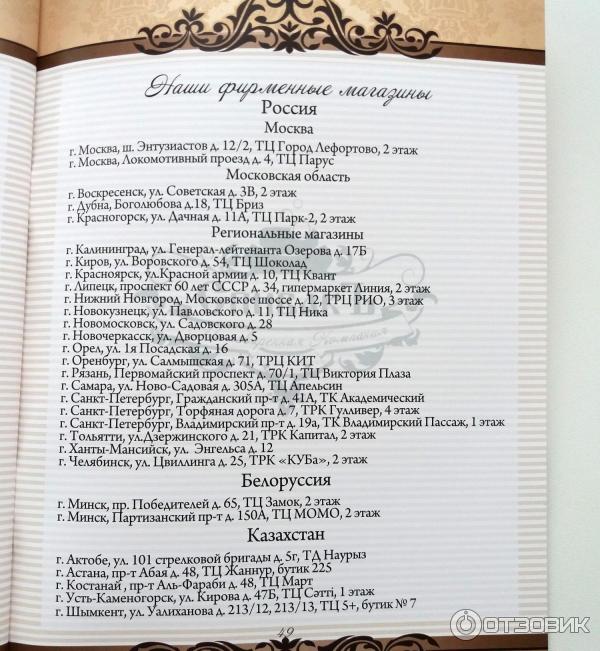 Наши фирменные магазины
Россия
Москва
г. Москва, ш. Энтузиастов д. 12/2, ТЦ Город Лефортово, 2 этаж
г. Москва, Локомотивный проезд д. 4, ТЦ Парус
Московская область
г. Воскресенск, ул. Советская д. 3В, 2 этаж
г. Дубна, Боголюбова д.18, ТЦ Бриз
г. Красногорск, ул. Дачная д. 11А, ТЦ Парк-2, 2 этаж
Региональные магазины
г. Калининград, ул. Генерал-лейтенанта Озерова д. 17Б
г. Киров, ул. Воровского д. 54, ТЦ Шоколад
г. Красноярск, ул.Красной армии д. 10, ТЦ Квант
г. Липецк, проспект 60 лет СССР д. 34, гипермаркет Линия, 2 этаж
г. Нижний Новгород, Московское шоссе д. 12, ТРЦ РИО, 3 этаж
г. Новокузнецк, ул. Павловского д. 11, ТЦ Ника
г. Новомосковск, ул. Садовского д. 28
г. Новочеркасск, ул. Дворцовая д. 5
г. Орел, ул. 1я Посадская д. 16
г. Оренбург, ул. Салмышская д. 71, ТРЦ КИТ
г. Рязань, Первомайский проспект д. 70/1, ТЦ Виктория Плаза
г. Самара, ул. Ново-Садовая д. 305А, ТЦ Апельсин
г. Санкт-Петербург, Гражданский пр-т д. 41А, ТК Академический
г. Санкт-Петербург, Торфяная дорога д. 7, ТРК Гулливер, 4 этаж
г. Санкт-Петербург, Владимирский пр-т д. 19а, ТК Владимирский Пассаж, 1 этаж
г. Тольятти, ул.Дзержинского д. 21, ТРК Капитал, 2 этаж
г. Ханты-Мансийск, ул. Энгельса д. 12
г. Челябинск, ул. Цвиллинга д. 25, ТРК «КУБа», 2 этаж
Белоруссия
г. Минск, пр. Победителей д. 65, ТЦ Замок, 2 этаж
г. Минск, Партизанский пр-т д. 150А, ТЦ МОМО, 2 этаж
Казахстан
г. Актобе, ул. 101 стрелковой бригады д. 5г, ТД Наурыз
г. Астана, пр-т Абая д. 48, ТЦ Жаннур, бутик 225
г. Костанай , пр-т Аль-Фараби д. 48, ТЦ Март
г. Усть-Каменогорск, ул. Кирова д. 47Б, ТЦ Сәтті, 1 этаж
г. Шымкент, ул. Уалиханова д. 213/12, 213/13, ТЦ 5+, бутик № 7
49
ОТЗОВИК